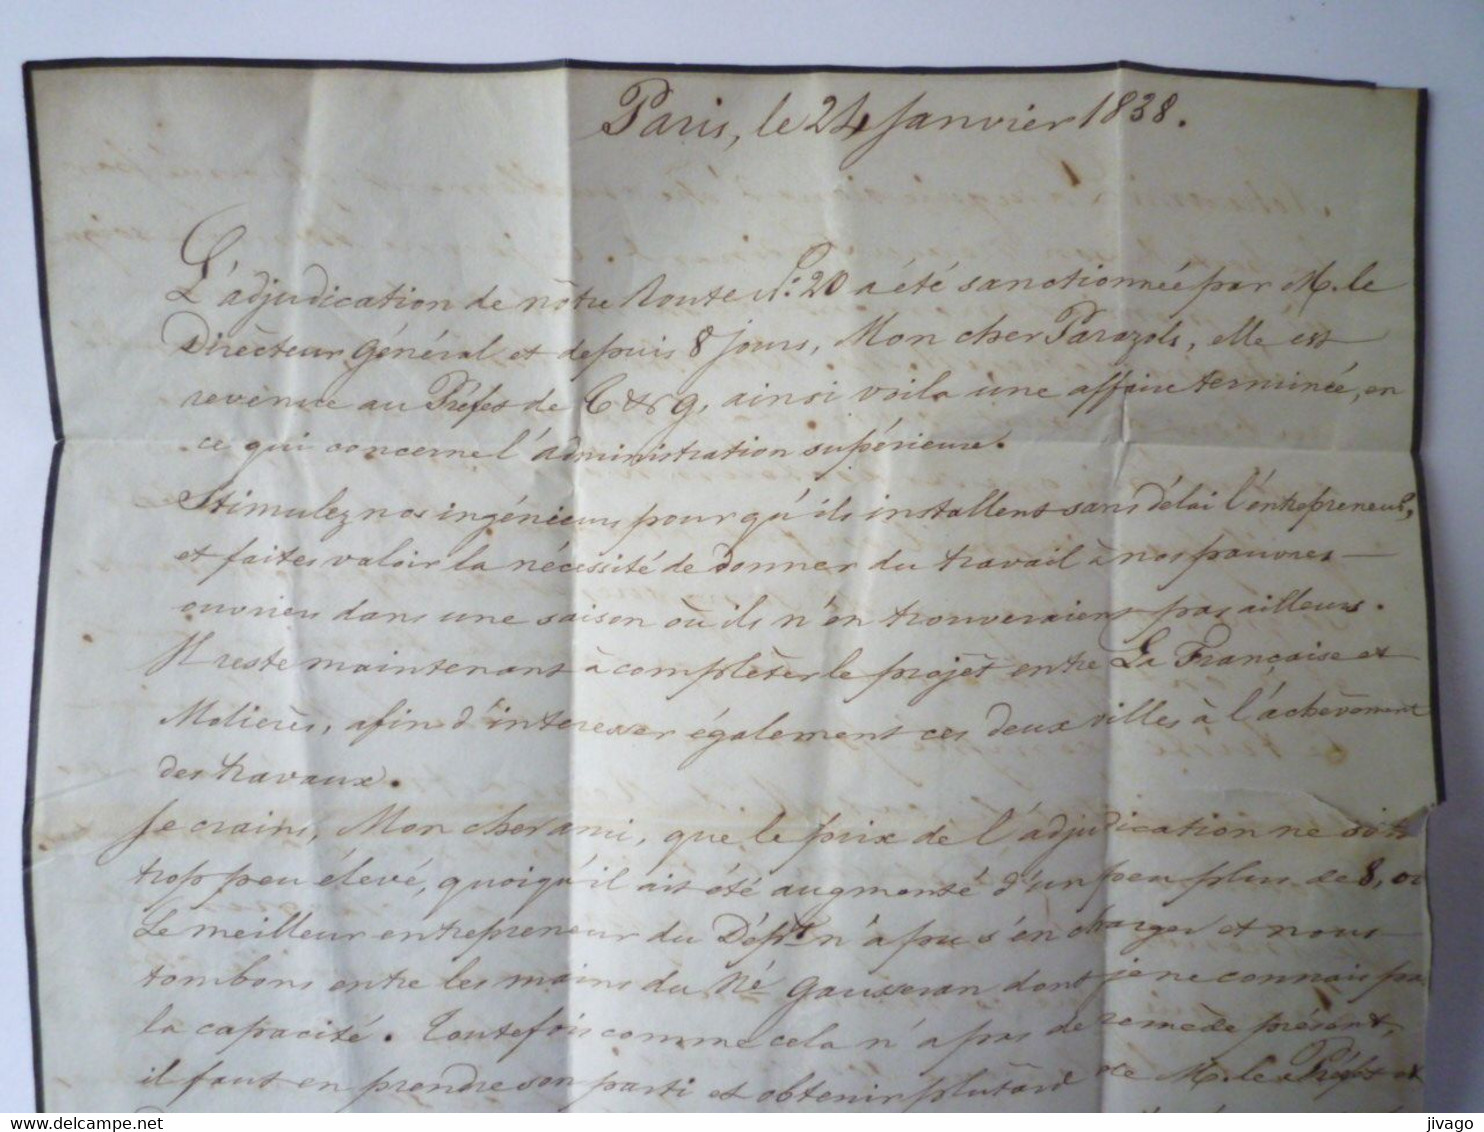 Paris, le 24 Janvier 1838.
L'adjudication de nôtre Route N.º 20 a été sanctionnée par M. le
Dirècteur Général et depuis 8 jours, Mon cher Parazols, elle est
revenue au Préfet de T & G, ainsi voila une affaire terminée, en
ce qui concerne l'administration supérieure.
Stimulez nos ingénieurs pour qu'ils installent sans délai l'entrepreneur,
et faites valoir la nécessité de donner du travail à nos pauvres
ouvriers dans une saison où ils n'en trouveraient pas ailleurs.
Il reste maintenant à complèter le projèt entre La Française et
Molières, afin d'interesser également ces deux villes à l'achèvement
des travaux.
Je crains, Mon cher ami, que le prix de l'adjudication ne soit
trop peu élevé, quoiqu'il ait été augmenté d'un peu plus de 8,0
Le meilleur entrepreneur du Dépt n'a pu s'en charger et nous
tombons entre les mains du Né Gausseran dont je ne connais pas
la capacité. Toutefois comme cela n'a pas de remède présent,
il faut en prendre son parti et obtenir plutard de M. le Préfet et
delcampe.net
jivago